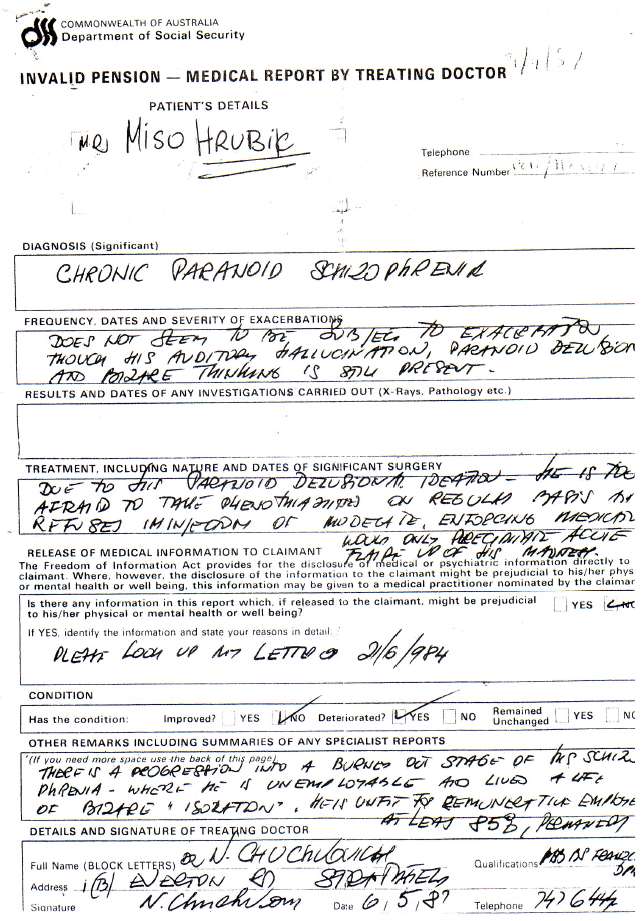 dss COMMONWEALTH OF AUSTRALIA
Department of Social Security
INVALID PENSION — MEDICAL REPORT BY TREATING DOCTOR
PATIENT'S DETAILS
MR MISO HRUBIK
Telephone
Reference Number
DIAGNOSIS (Significant)
CHRONIC PARANOID SCHIZOPHRENIA
FREQUENCY, DATES AND SEVERITY OF EXACERBATIONS
DOES NOT SEEM TO BE SUBJECT TO EXACERBATION,
THOUGH HIS AUDITORY HALLUCINATION, PARANOID DELUSION
AND BIZARE THINKING IS STILL PRESENT.
RESULTS AND DATES OF ANY INVESTIGATIONS CARRIED OUT (X-Rays, Pathology etc.)
TREATMENT, INCLUDING NATURE AND DATES OF SIGNIFICANT SURGERY
DUE TO HIS PARANOID DELUSIONAL IDEATION - HE IS TOO
AFRAID TO TAKE PHENOTHIAZINES ON REGULAR BASIS
REFUSES OF MODECATE, ENFORCING MEDICAL
WOULD ONLY PRECIPITATE
FLARE UP OF HIS MADNESS.
RELEASE OF MEDICAL INFORMATION TO CLAIMANT
The Freedom of Information Act provides for the disclosure of medical or psychiatric information directly to
claimant. Where, however, the disclosure of the information to the claimant might be prejudicial to his/her phys
or mental health or well being, this information may be given to a medical practitioner nominated by the claimar
Is there any information in this report which, if released to the claimant, might be prejudicial
to his/her physical or mental health or well being?
YES NO
If YES, identify the information and state your reasons in detail.
PLEASE LOOK UP MY LETTER 21/6/984
CONDITION
Has the condition: Improved? YES NO Deteriorated? YES NO Remained Unchanged YES NO
OTHER REMARKS INCLUDING SUMMARIES OF ANY SPECIALIST REPORTS
(If you need more space use the back of this page)
THERE IS A PROGRESSION INTO A BURNED OUT STAGE OF HIS SCHIZO
PHRENIA - WHERE HE IS UNEMPLOYABLE AND LIVES A LIFE
OF BIZARE "ISOLATION". HE IS UNFIT FOR REMUNERATIVE EMPLOYE
AT LEAST 85%, PERMANENT
DETAILS AND SIGNATURE OF TREATING DOCTOR
Full Name (BLOCK LETTERS) DR N. CHUCHKOVICH Qualifications
Address 1(B) EVERTON RD STRATHFIELD
Signature Date 6,5,87 Telephone 7476442